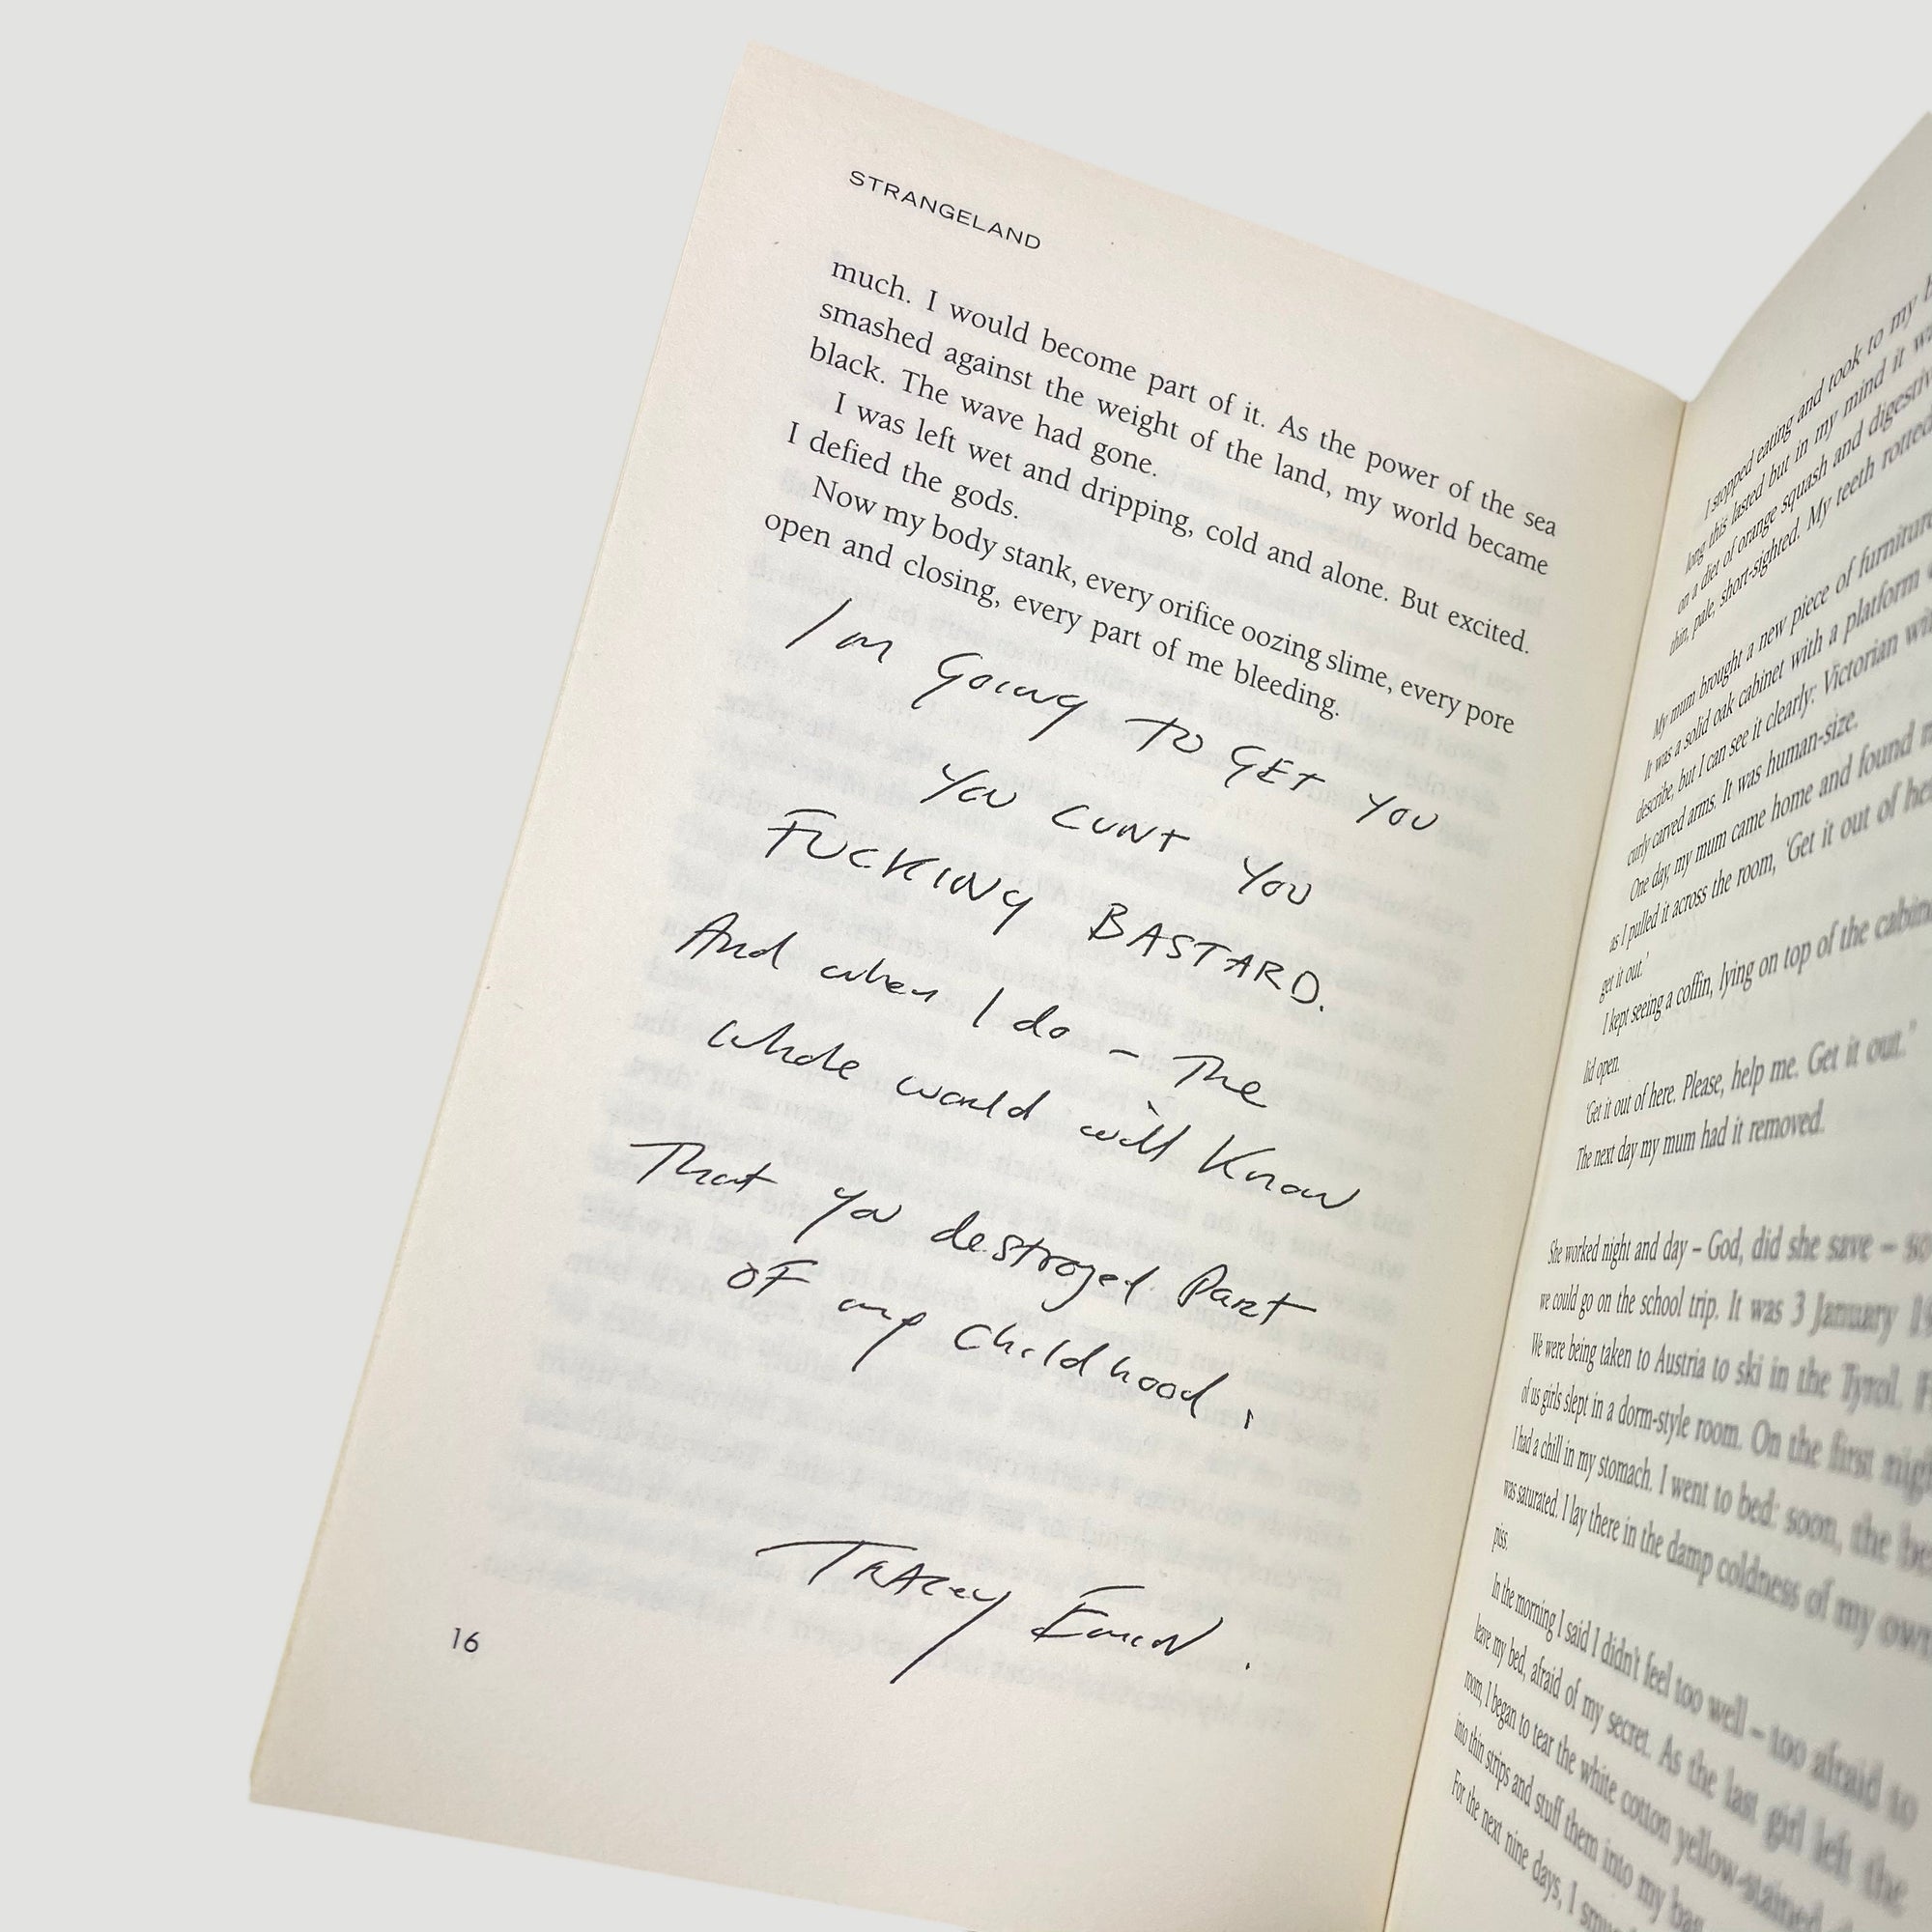 STRANGELAND
much. I would become part of it. As the power of the sea
smashed against the weight of the land, my world became
black. The wave had gone.
I was left wet and dripping, cold and alone. But excited.
I defied the gods.
Now my body stank, every orifice oozing slime, every pore
open and closing, every part of me bleeding.
I m Going TO GET YOU
YOU CUNT YOU
FUCKING BASTARD.
And when I do – The
whole world will Know
That you destroyed Part
OF my childhood.
TRACEY EMIN.
16
I stopped eating and took to my
long this lasted but in my mind it
on a diet of orange squash and
thin, pale, short-sighted. My teeth rotted
My mum brought a new piece of
It was a solid oak cabinet with a platform
describe, but I can see it clearly: Victorian
curly carved arms. It was human-size.
One day, my mum came home and found
as I pulled it across the room, 'Get it out of
get it out.'
I kept seeing a coffin, lying on top of the
lid open.
'Get it out of here. Please, help me. Get it out.'
The next day my mum had it removed.
She worked night and day – God, did she save –
we could go on the school trip. It was 3 January
We were being taken to Austria to ski in the Tyrol.
of us girls slept in a dorm-style room. On the first
I had a chill in my stomach. I went to bed: soon, the
was saturated. I lay there in the damp coldness of my own
piss.
In the morning I said I didn't feel too well – too afraid to
leave my bed, afraid of my secret. As the last girl left the
room, I began to tear the white cotton yellow-stained
into thin strips and stuff them into my bag.
For the next nine days, I